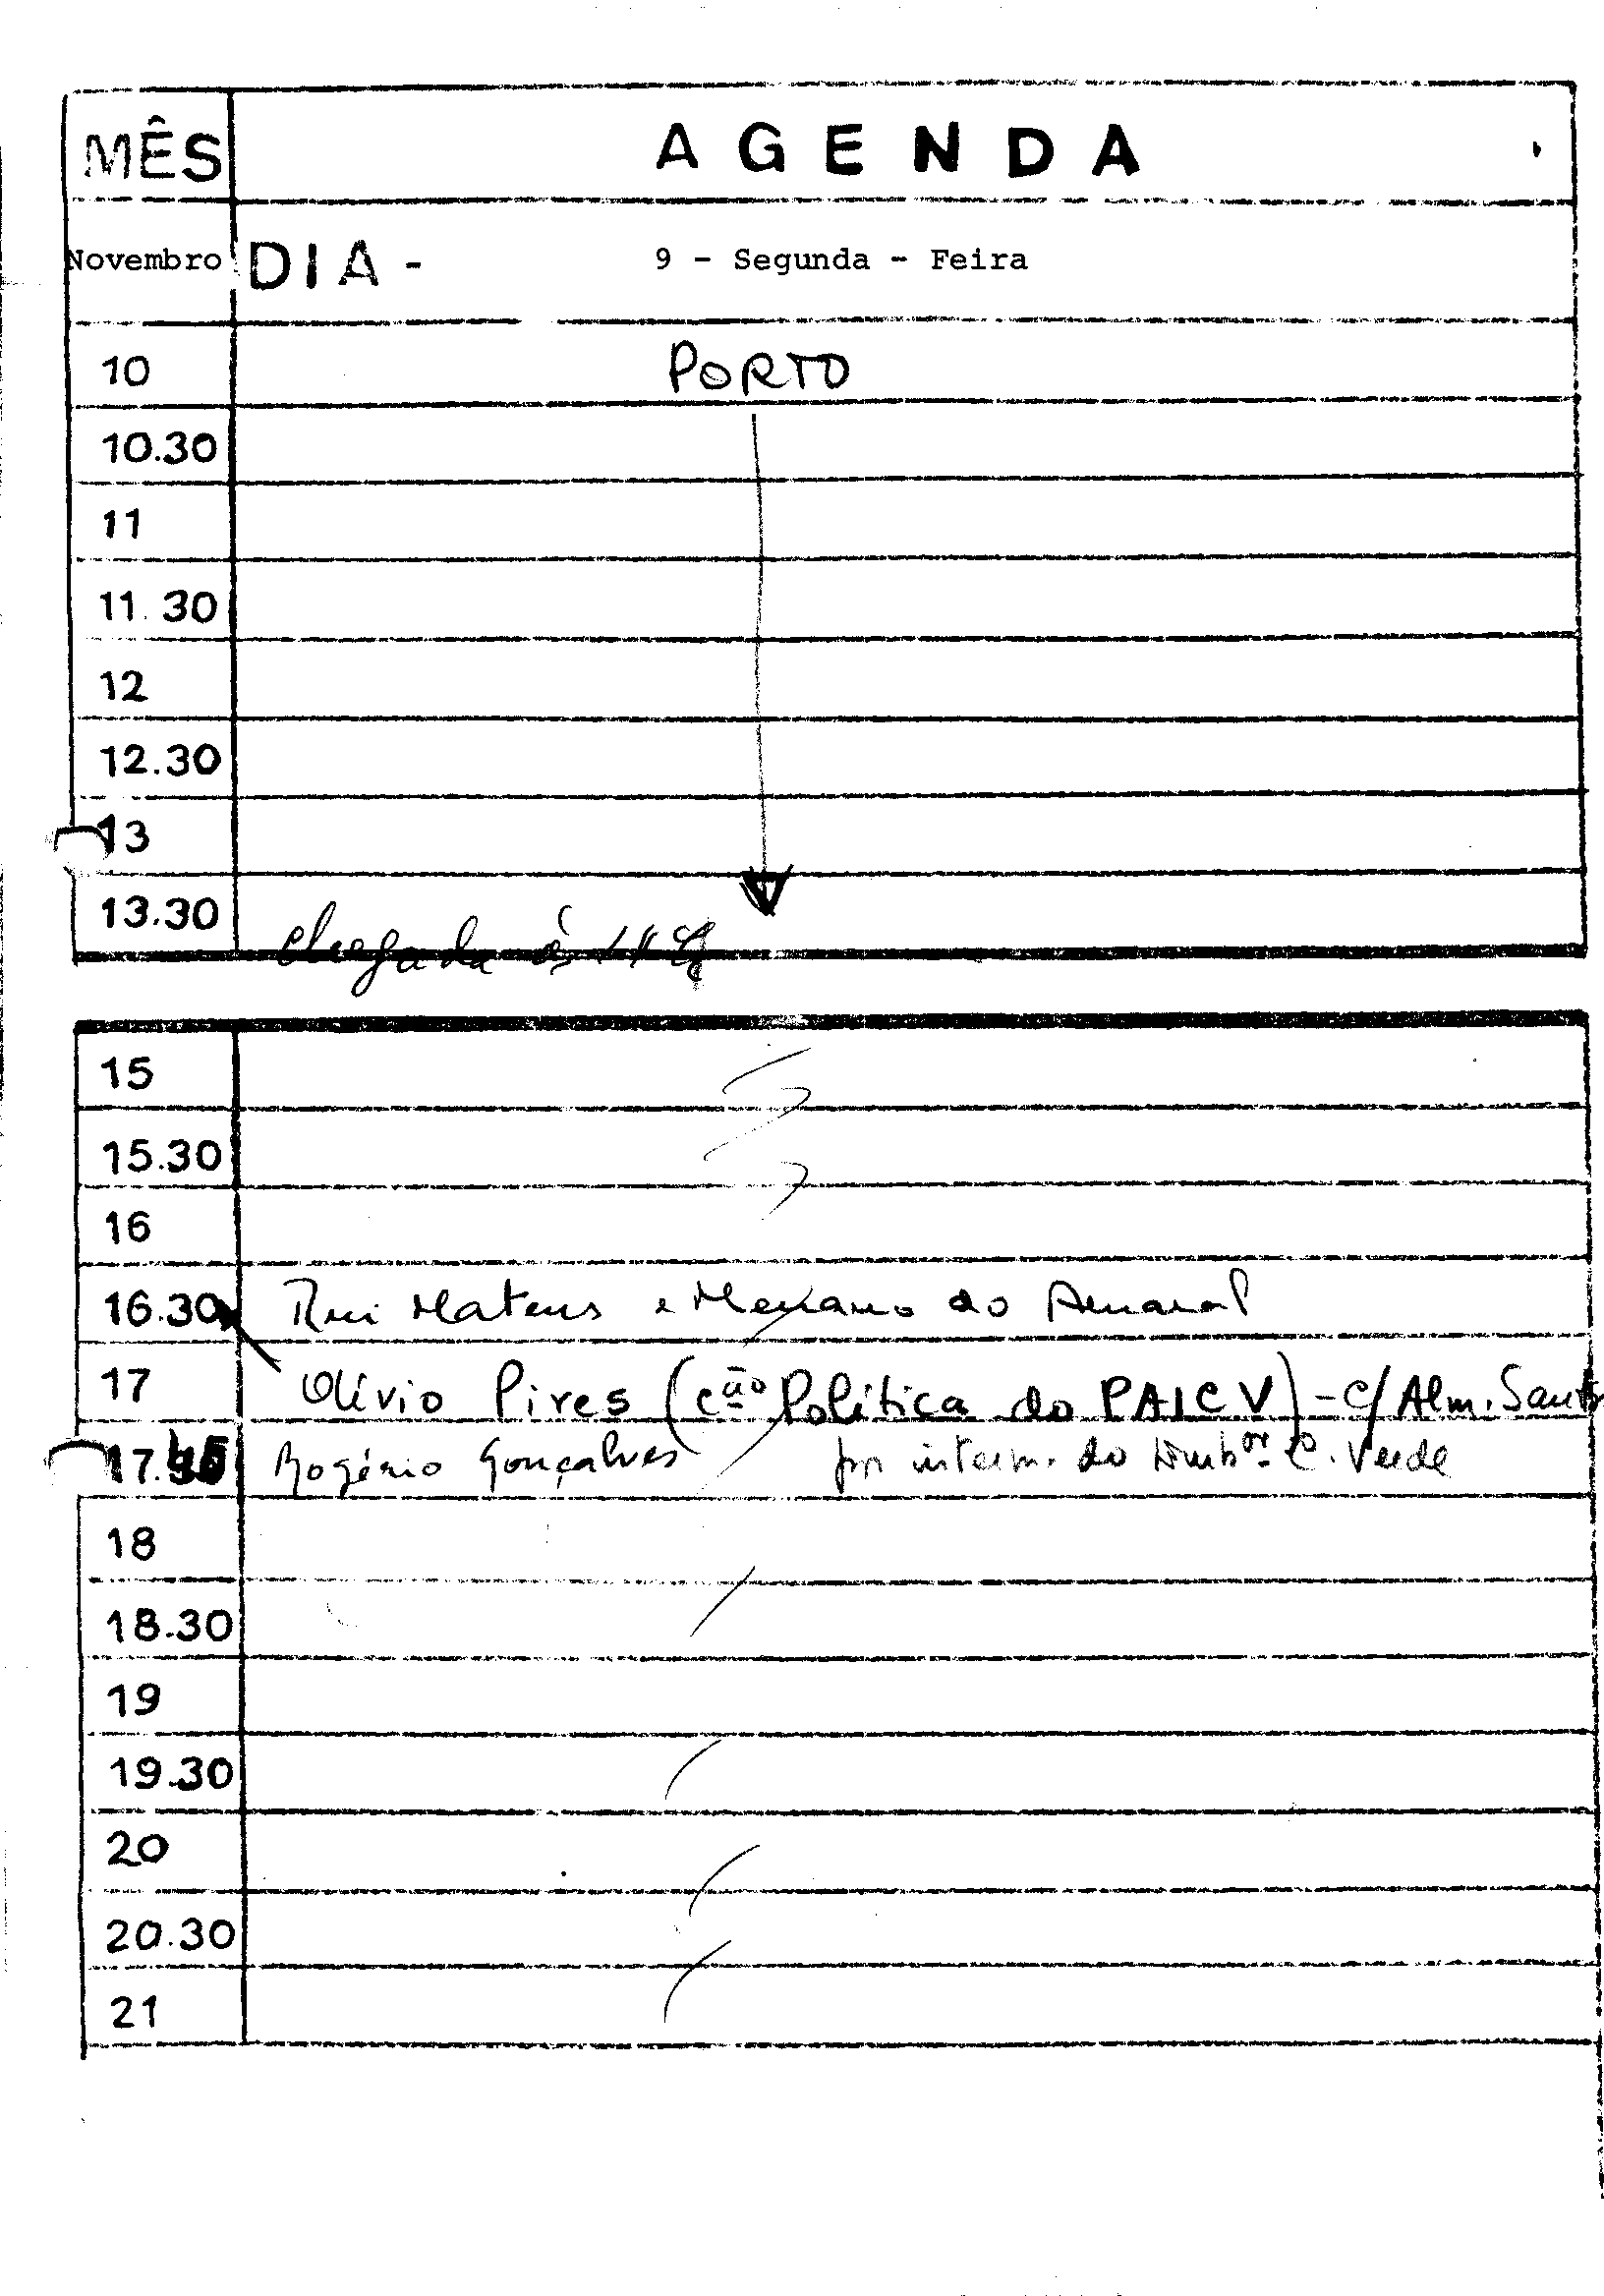 MÊS AGENDA
Novembro DIA - 9 - Segunda - Feira
10 PORTO
10.30
11
11.30
12
12.30
13
13.30
chegada às
15
15.30
16
16.30 Rui Mateus e do Amaral
17 Olívio Pires (cão Política do PAICV) - c/ Alm. Santos
17.45 Rogério Gonçalves por interm. do Emb.or C. Verde
18
18.30
19
19.30
20
20.30
21